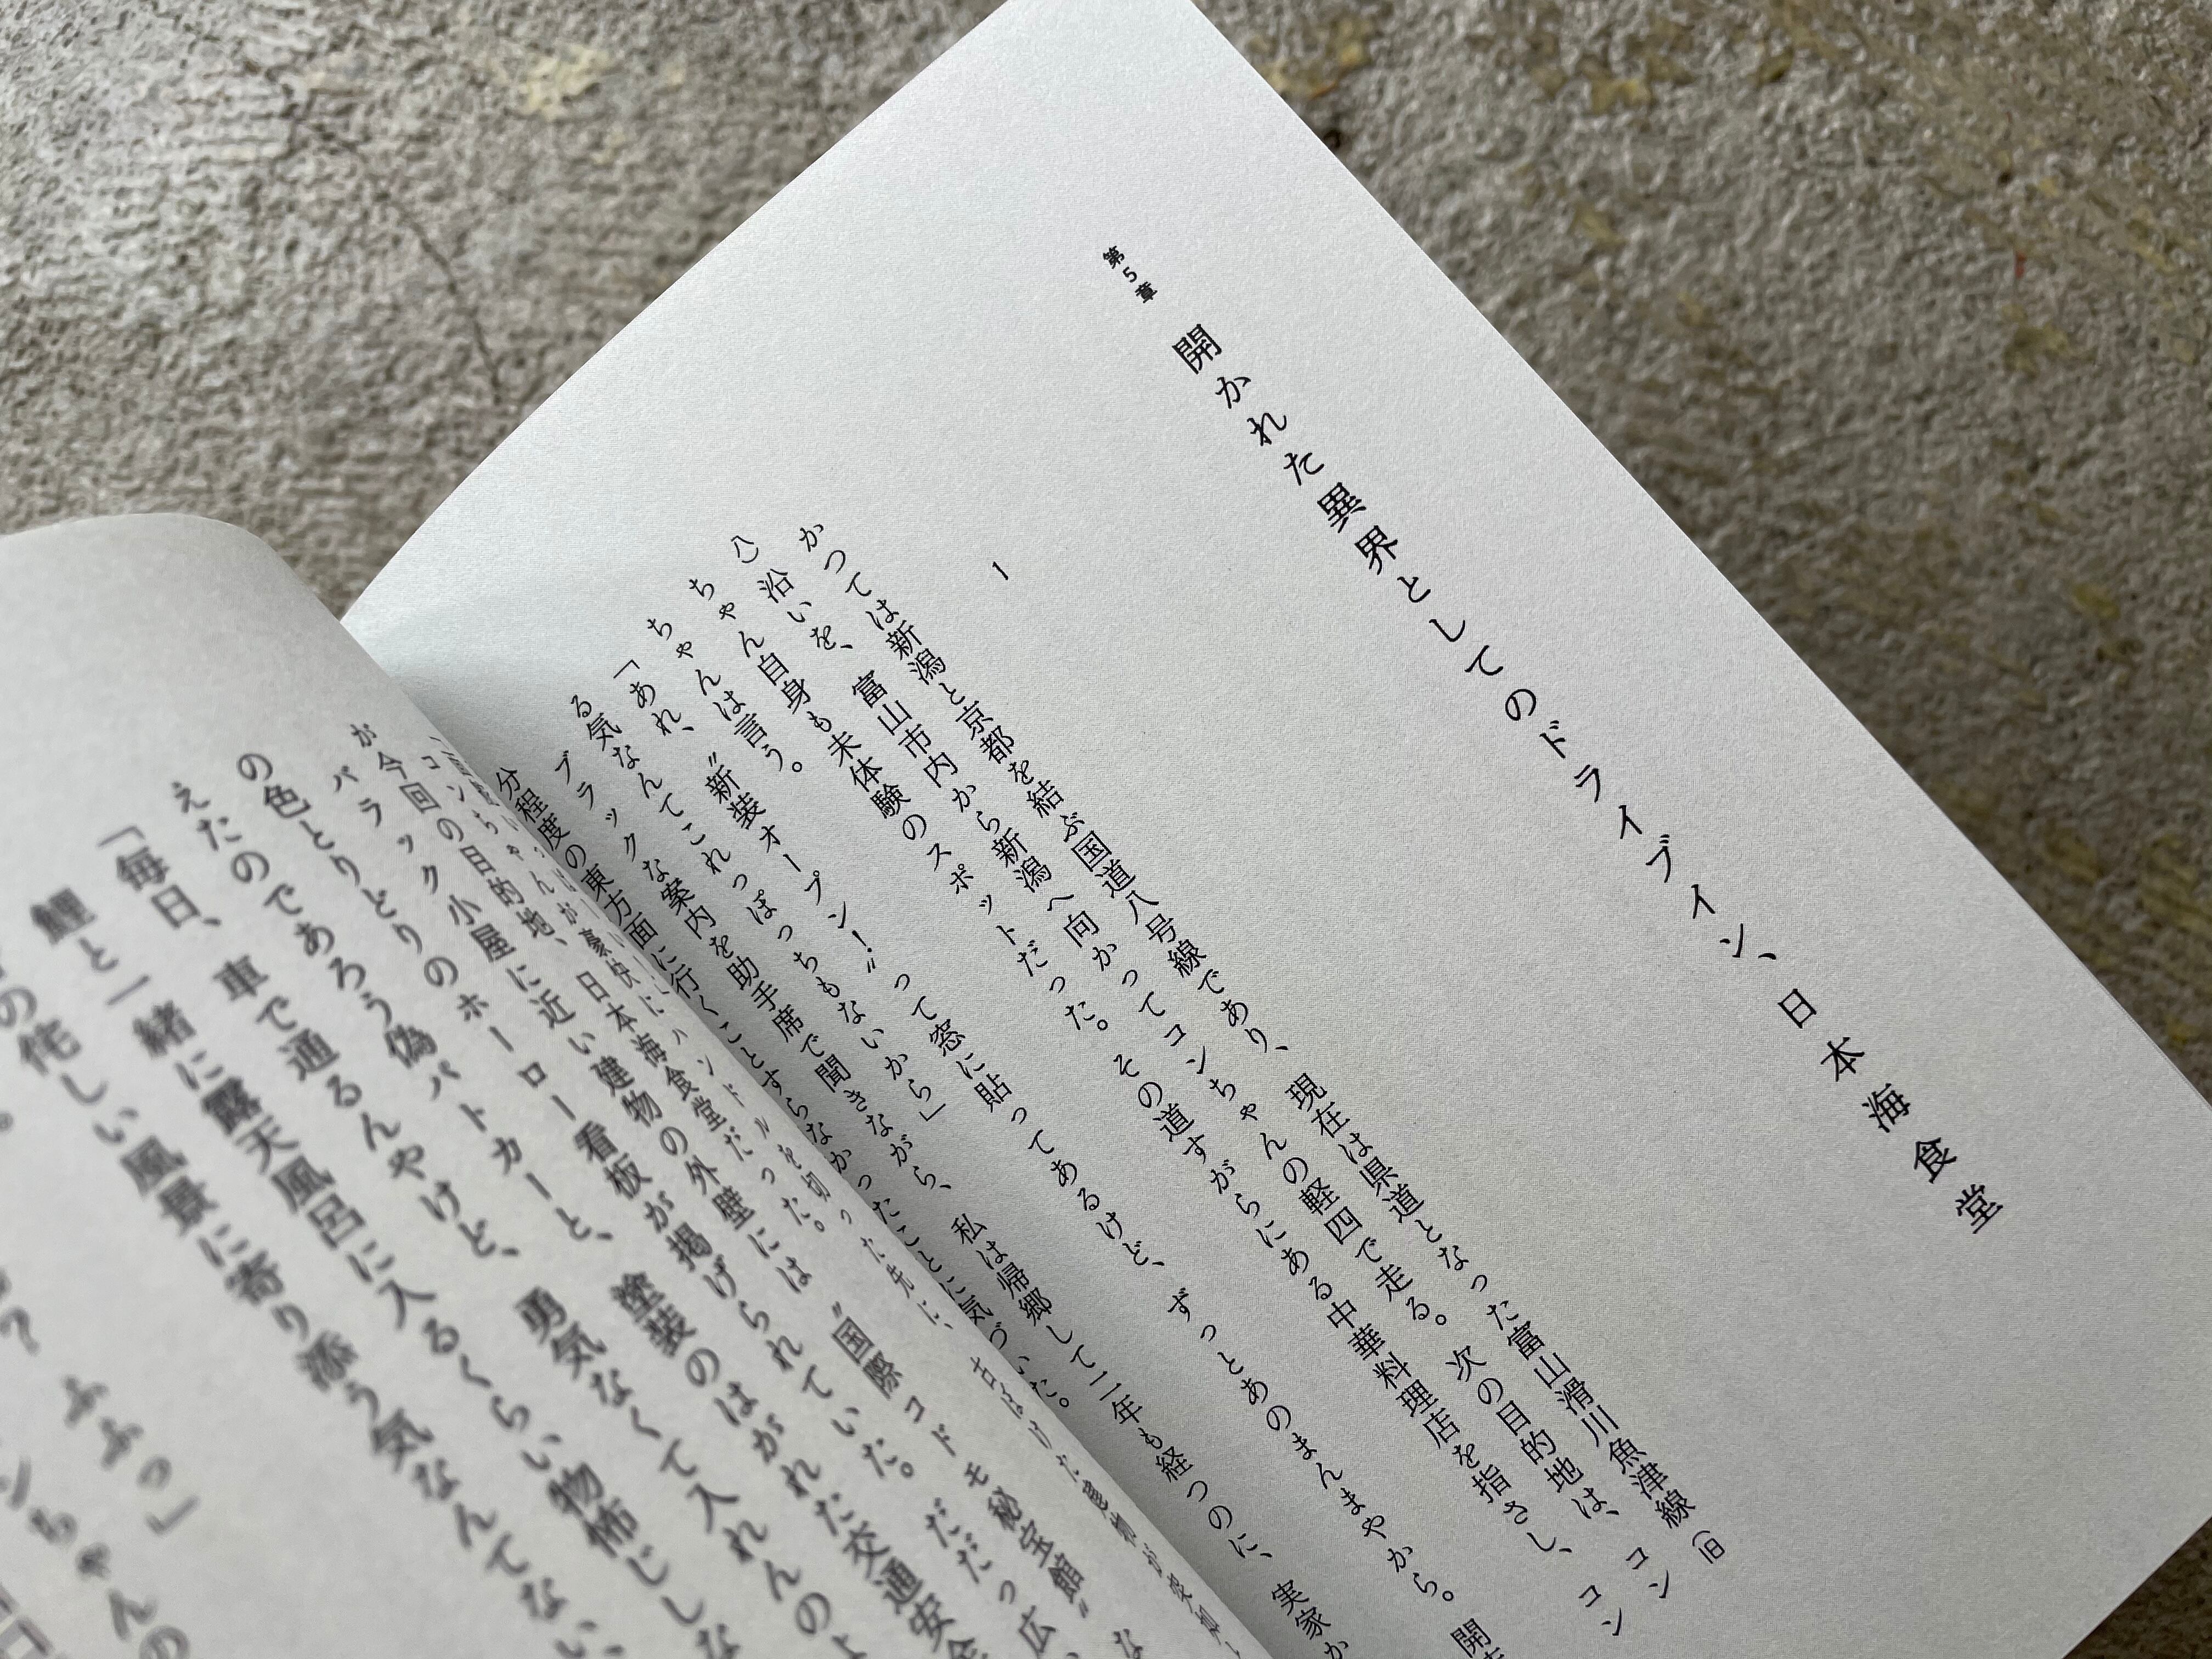 第5章
開かれた異界としてのドライブイン、日本海食堂
1
かつては新潟と京都を結ぶ国道八号線であり、現在は県道となった富山滑川魚津線(旧
八)沿いを、富山市内から新潟へ向かってコンちゃんの軽四で走る。次の目的地は、コン
ちゃん自身も未体験のスポットだった。その道すがらにある中華料理店を指さし、コン
ちゃんは言う。
「あれ、〝新装オープン!〟って窓に貼ってあるけど、ずっとあのまんまやから。開
る気なんてこれっぽっちもないから」
ブラックな案内を助手席で聞きながら、私は帰郷して二年も経つのに、実家か
分程度の東方面に行くことすらなかったことに気づいた。
コンちゃんが豪快にハンドルを切った先に、古ぼけた
が今回の目的地、日本海食堂だった。
バラック小屋に近い建物の外壁には〝国際コドモ秘宝館〟な
の色とりどりのホーロー看板が掲げられていた。だだっ広
えたのであろう偽パトカーと、塗装のはがれた交通安全
「毎日、車で通るんやけど、勇気なくて入れんのよ
鯉と一緒に露天風呂に入るくらい物怖じしな
の侘しい風景に寄り添う気なんてない、
? ふふっ」
ンちゃんの